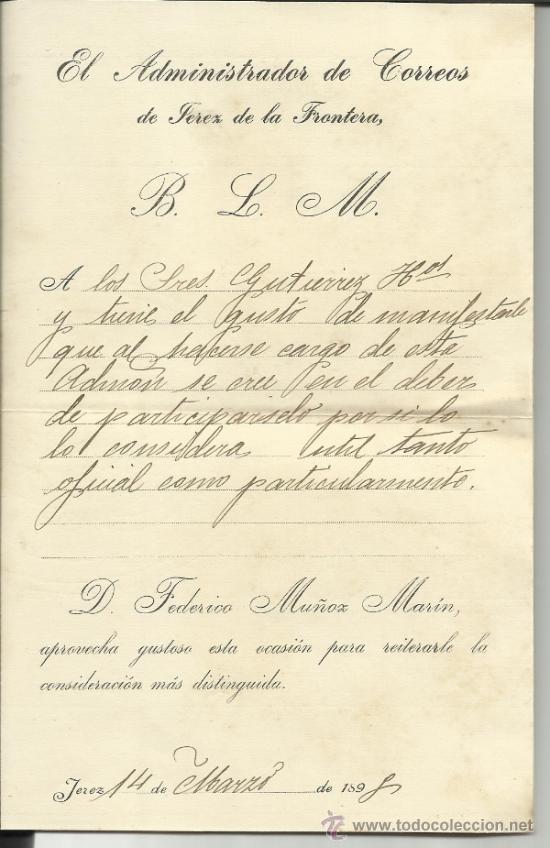 El Administrador de Correos
de Jerez de la Frontera,
B. L. M.
A los Sres. Gutierrez Hos
y tiene el gusto de manifestarle
que al hacerse cargo de esta
Admón se cree en el deber
de participarselo por si lo
lo considera util tanto
oficial como particularmente.
D. Federico Muñoz Marín,
aprovecha gustoso esta ocasión para reiterarle la
consideración más distinguida.
Jerez 14 de Marzo de 1898
www.todocoleccion.net